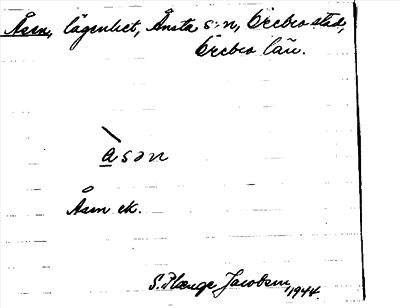 Åsen, lägenhet, Ånsta s:n, Örebro stad,
Örebro län.
àsən
Åsen ek.
S. Plænge Jacobsen 1944.